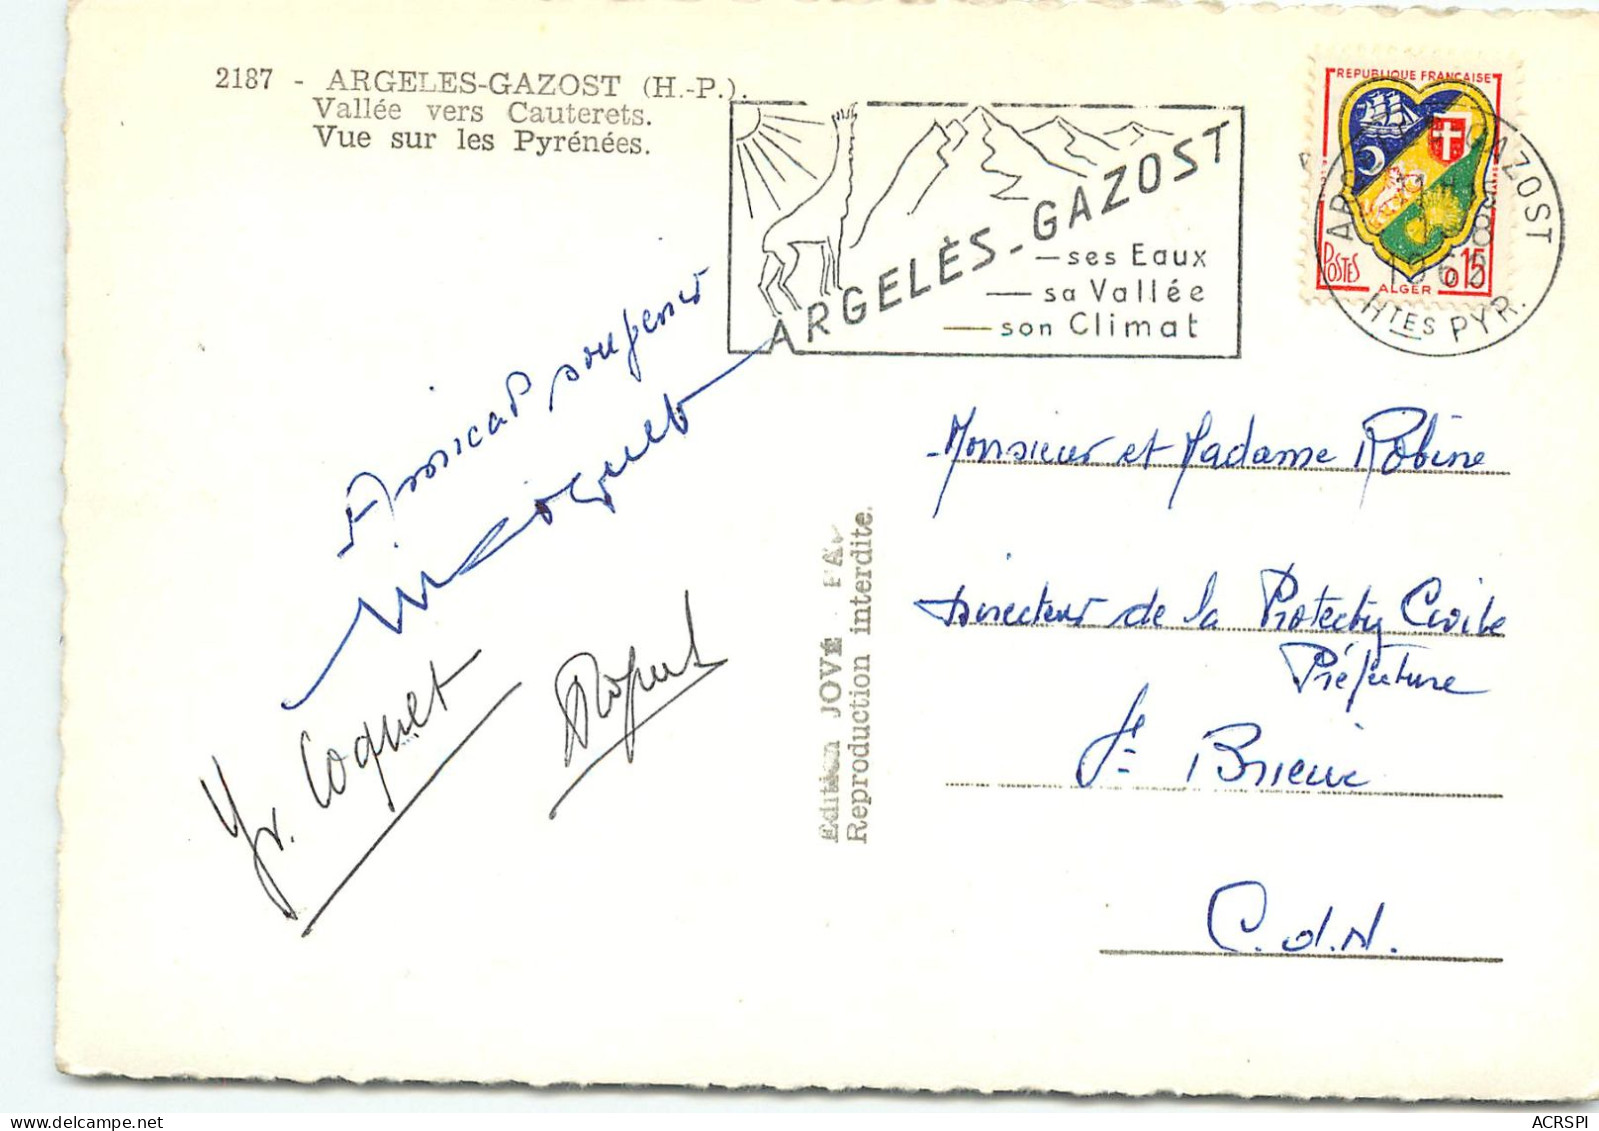 2187 - ARGELES-GAZOST (H.-P.).
Vallée vers Cauterets.
Vue sur les Pyrénées.
ARGELÈS-GAZOST
ses Eaux
sa Vallée
son Climat
REPUBLIQUE FRANÇAISE
POSTES
0,15
ALGER
GAZOST
HTES PYR.
Amical souvenir
Coquet
Yv. Coquet
Edition JOVE
Reproduction interdite.
Monsieur et Madame Robine
Directeur de la Protection Civile
Préfecture
St Brieuc
C.d.N.
ACRSPI